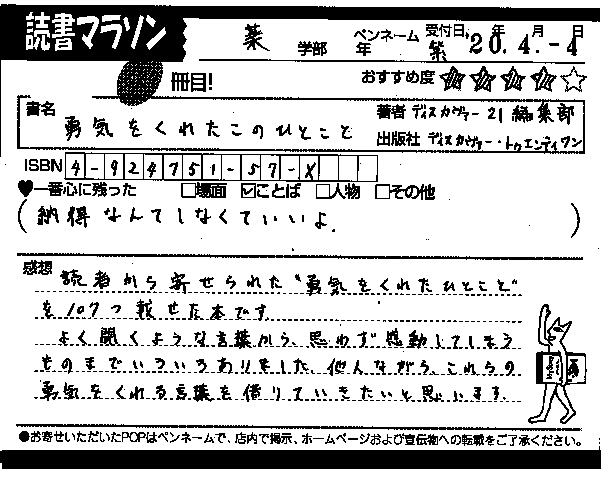 読書マラソン
薬 学部 年
ペンネーム 紫
受付日 '20.年4.月-4日
冊目!
おすすめ度 ★★★★☆
書名 勇気をくれたこのひとこと
著者 ディスカヴァー21編集部
出版社 ディスカヴァー・トゥエンティワン
ISBN 4-924751-57-X
♥一番心に残った □場面 ☑ことば □人物 □その他
(納得なんてしなくていいよ。)
感想
読者から寄せられた“勇気をくれたひとこと”
を107つ載せた本です。
よく聞くような言葉から、思わず感動してしまう
ものまでいろいろありました。他人ながら、これらの
勇気をくれる言葉を借りていきたいと思います。
●お寄せいただいたPOPはペンネームで、店内で掲示、ホームページおよび宣伝物への転載をご了承ください。